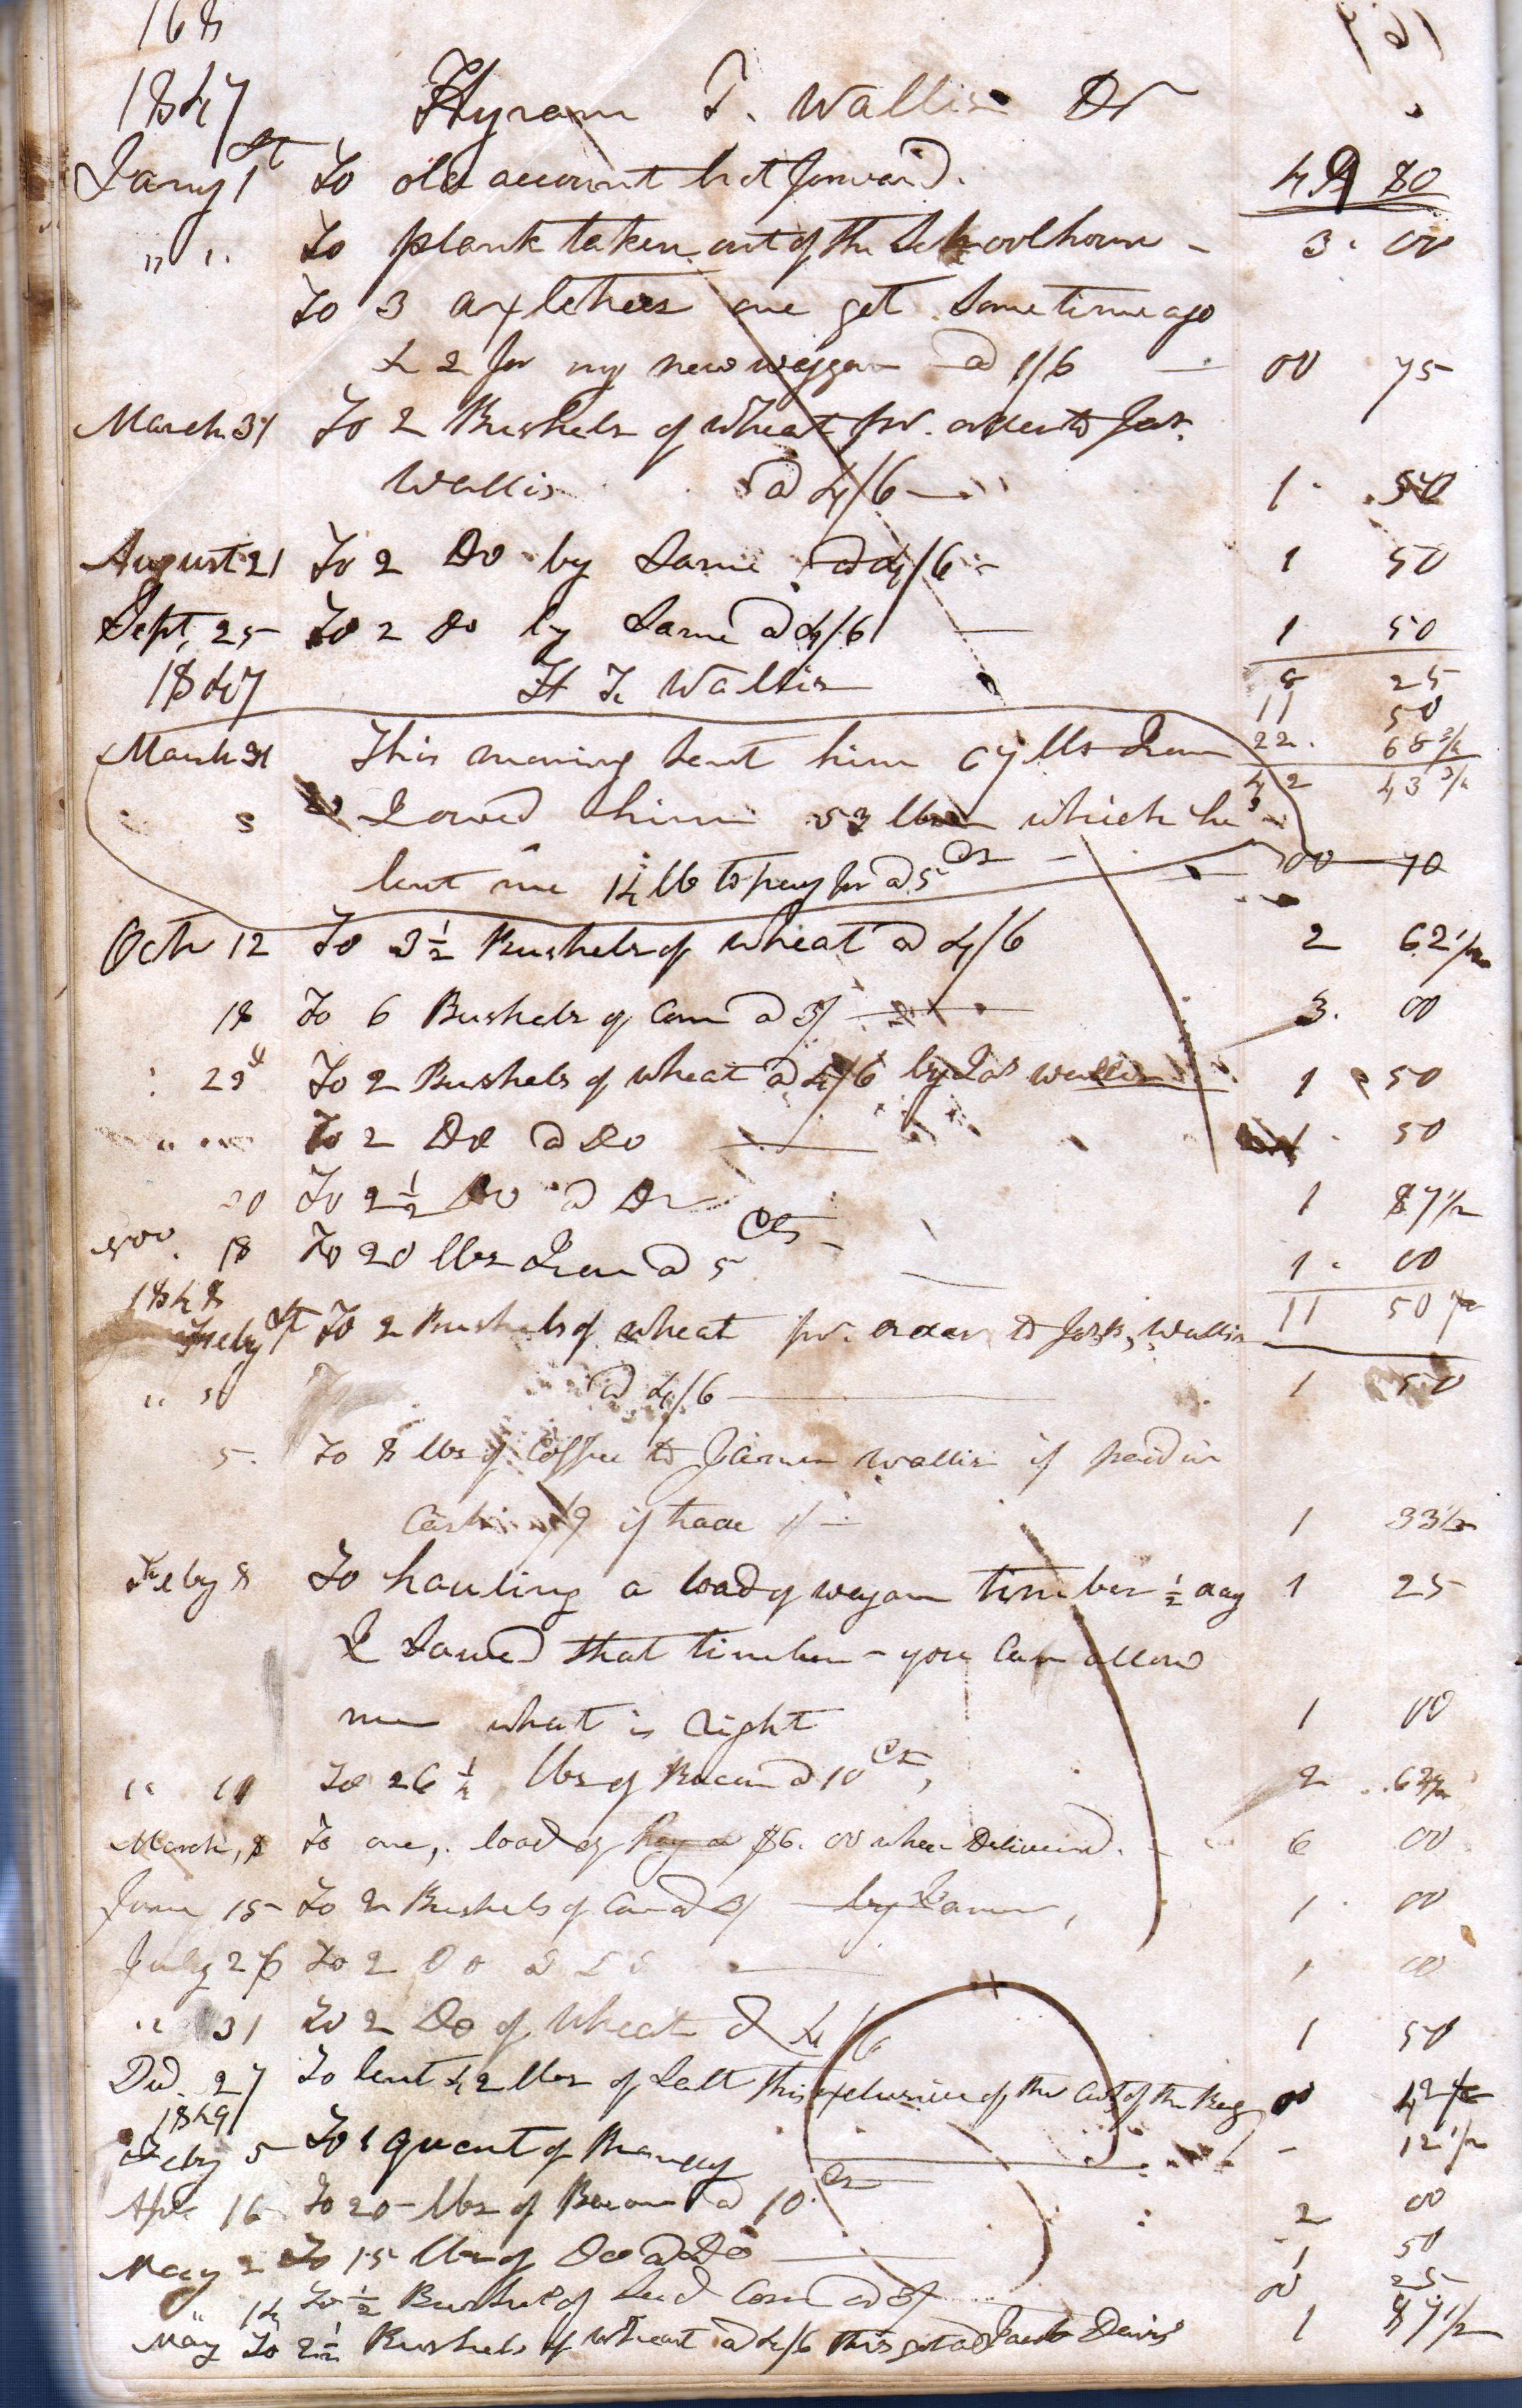 168
1847 Hyram T. Wallis Dr
Jany 1st To old account brt forward. 49 80
" " To plank taken out of the Schoolhouse - 3. 00
To 3 axletrees one get some time ago
& 2 for my new waggon @ 1/6 — 00 75
March 31 To 2 Bushels of wheat pr. order to Jas.
Wallis @ 4/6 — 1. 50
August 21 To 2 Do by Same @ 4/6 - 1 50
Sept, 25 To 2 Do by Same @ 4/6 — 1 50
1847 H T. Wallis 8 25
11 50
March 31 This morning sent him 67 lbs Iron 22. 68 3/4
42 43 3/4
I owed him 53 lbs which he
lent me 14 lb to pay for @ 5 cts — 00 70
Oct 12 To 3 1/2 Bushels of wheat @ 4/6 2 62 1/2
18 To 6 Bushels of Corn @ 3/ — 3. 00
29th To 2 Bushels of wheat @ 4/6 by Jas Wallis 1 50
" To 2 Do @ Do — 1. 50
30 To 2 1/2 Do @ Do 1 87 1/2
Nov. 18 To 20 lbs Iron @ 5 cts - 1. 00
1848 11 50
Feby 1st To 2 Bushels of wheat pr. order to Jas, Wallis
" " @ 4/6 — 1 50
5. To 8 lbs of Coffee to James Wallis if paid in
Cash /9 if trade 1/ — 1 33 1/3
Feby 8 To hauling a load of wagon timber 1/2 day 1 25
I Sawed that timber - you can allow
me what is right 1 00
" 11 To 26 1/4 lbs of Bacon @ 10 cts, 2 62 1/2
March, 8 To one, load of hay @ $6. 00 when Delivered. - 6 00
June 15 To 2 Bushels of Corn @ 3/ — by James, 1. 00
July 26 To 2 Do @ Do — 1 00
" 31 To 2 Do of Wheat @ 4/6 1 50
Dec. 27 To lent 42 lbs of Salt this exclusive of the cost of the Keg 00 42
1849
Feby 5 To 1 quart of Brandy - 12 1/2
Apr. 16 To 20 lbs of Bacon @ 10 cts 2 00
May 2 To 15 lbs of Do @ Do — 1 50
" 14 To 1/2 Bushel of Seed Corn @ 3/ 00 25
May To 2 1/2 Bushels of wheat @ 4/6 this got Jacob Davis 1 87 1/2